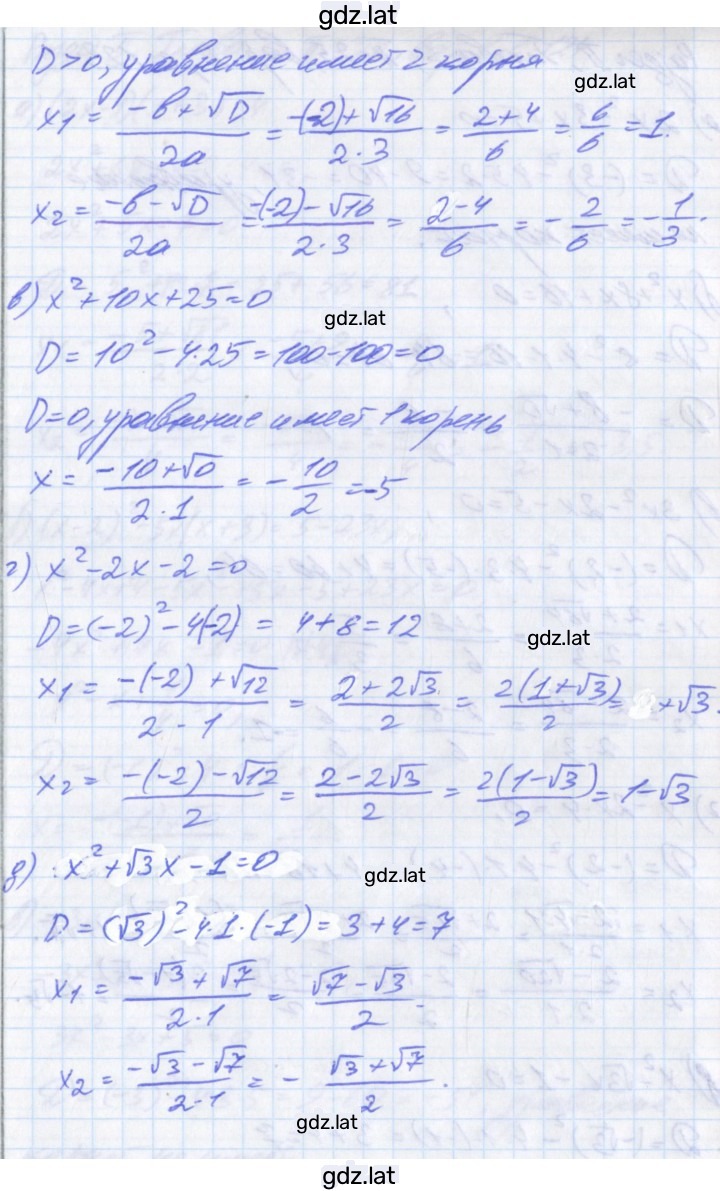 gdz.lat
D>0, уравнение имеет 2 корня
gdz.lat
x₁ = (-b+√D)/(2a) = (-(-2)+√16)/(2·3) = (2+4)/6 = 6/6 = 1.
x₂ = (-b-√D)/(2a) = (-(-2)-√16)/(2·3) = (2-4)/6 = -2/6 = -1/3.
в) x²+10x+25=0
gdz.lat
D=10²-4·25=100-100=0
D=0, уравнение имеет 1 корень
x = (-10+√0)/(2·1) = -10/2 = -5
г) x²-2x-2=0
D=(-2)²-4(-2) = 4+8=12
gdz.lat
x₁ = (-(-2)+√12)/(2·1) = (2+2√3)/2 = (2(1+√3))/2 = +√3.
x₂ = (-(-2)-√12)/2 = (2-2√3)/2 = (2(1-√3))/2 = 1-√3
д) x²+√3x-1=0
gdz.lat
D=(√3)²-4·1·(-1)=3+4=7
x₁ = (-√3+√7)/(2·1) = (√7-√3)/2.
x₂ = (-√3-√7)/(2·1) = -(√3+√7)/2.
gdz.lat
gdz.lat